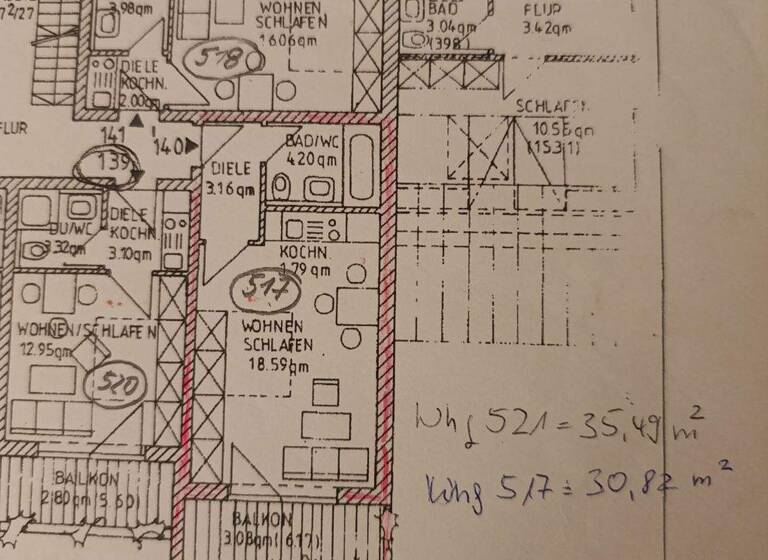 7 2/27
3.98qm
WOHNEN
SCHLAFEN
16.06qm
518
BAD
3.04qm
(398)
FLUR
3.42qm
DIELE
KOCHN.
2.00qm
FLUR
141
140
139
SCHLAFEN
10.56qm
(15.31)
BAD/WC
4.20qm
DIELE
3.16qm
DU/WC
3.32qm
DIELE
KOCHN.
3.10qm
KOCHN.
1.79qm
517
WOHNEN/SCHLAFEN
12.95qm
520
WOHNEN
SCHLAFEN
18.59qm
Whg 521 = 35,49 m²
Whg 517 = 30,82 m²
BALKON
2.80qm(5.60)
BALKON
3.08qm(6.17)